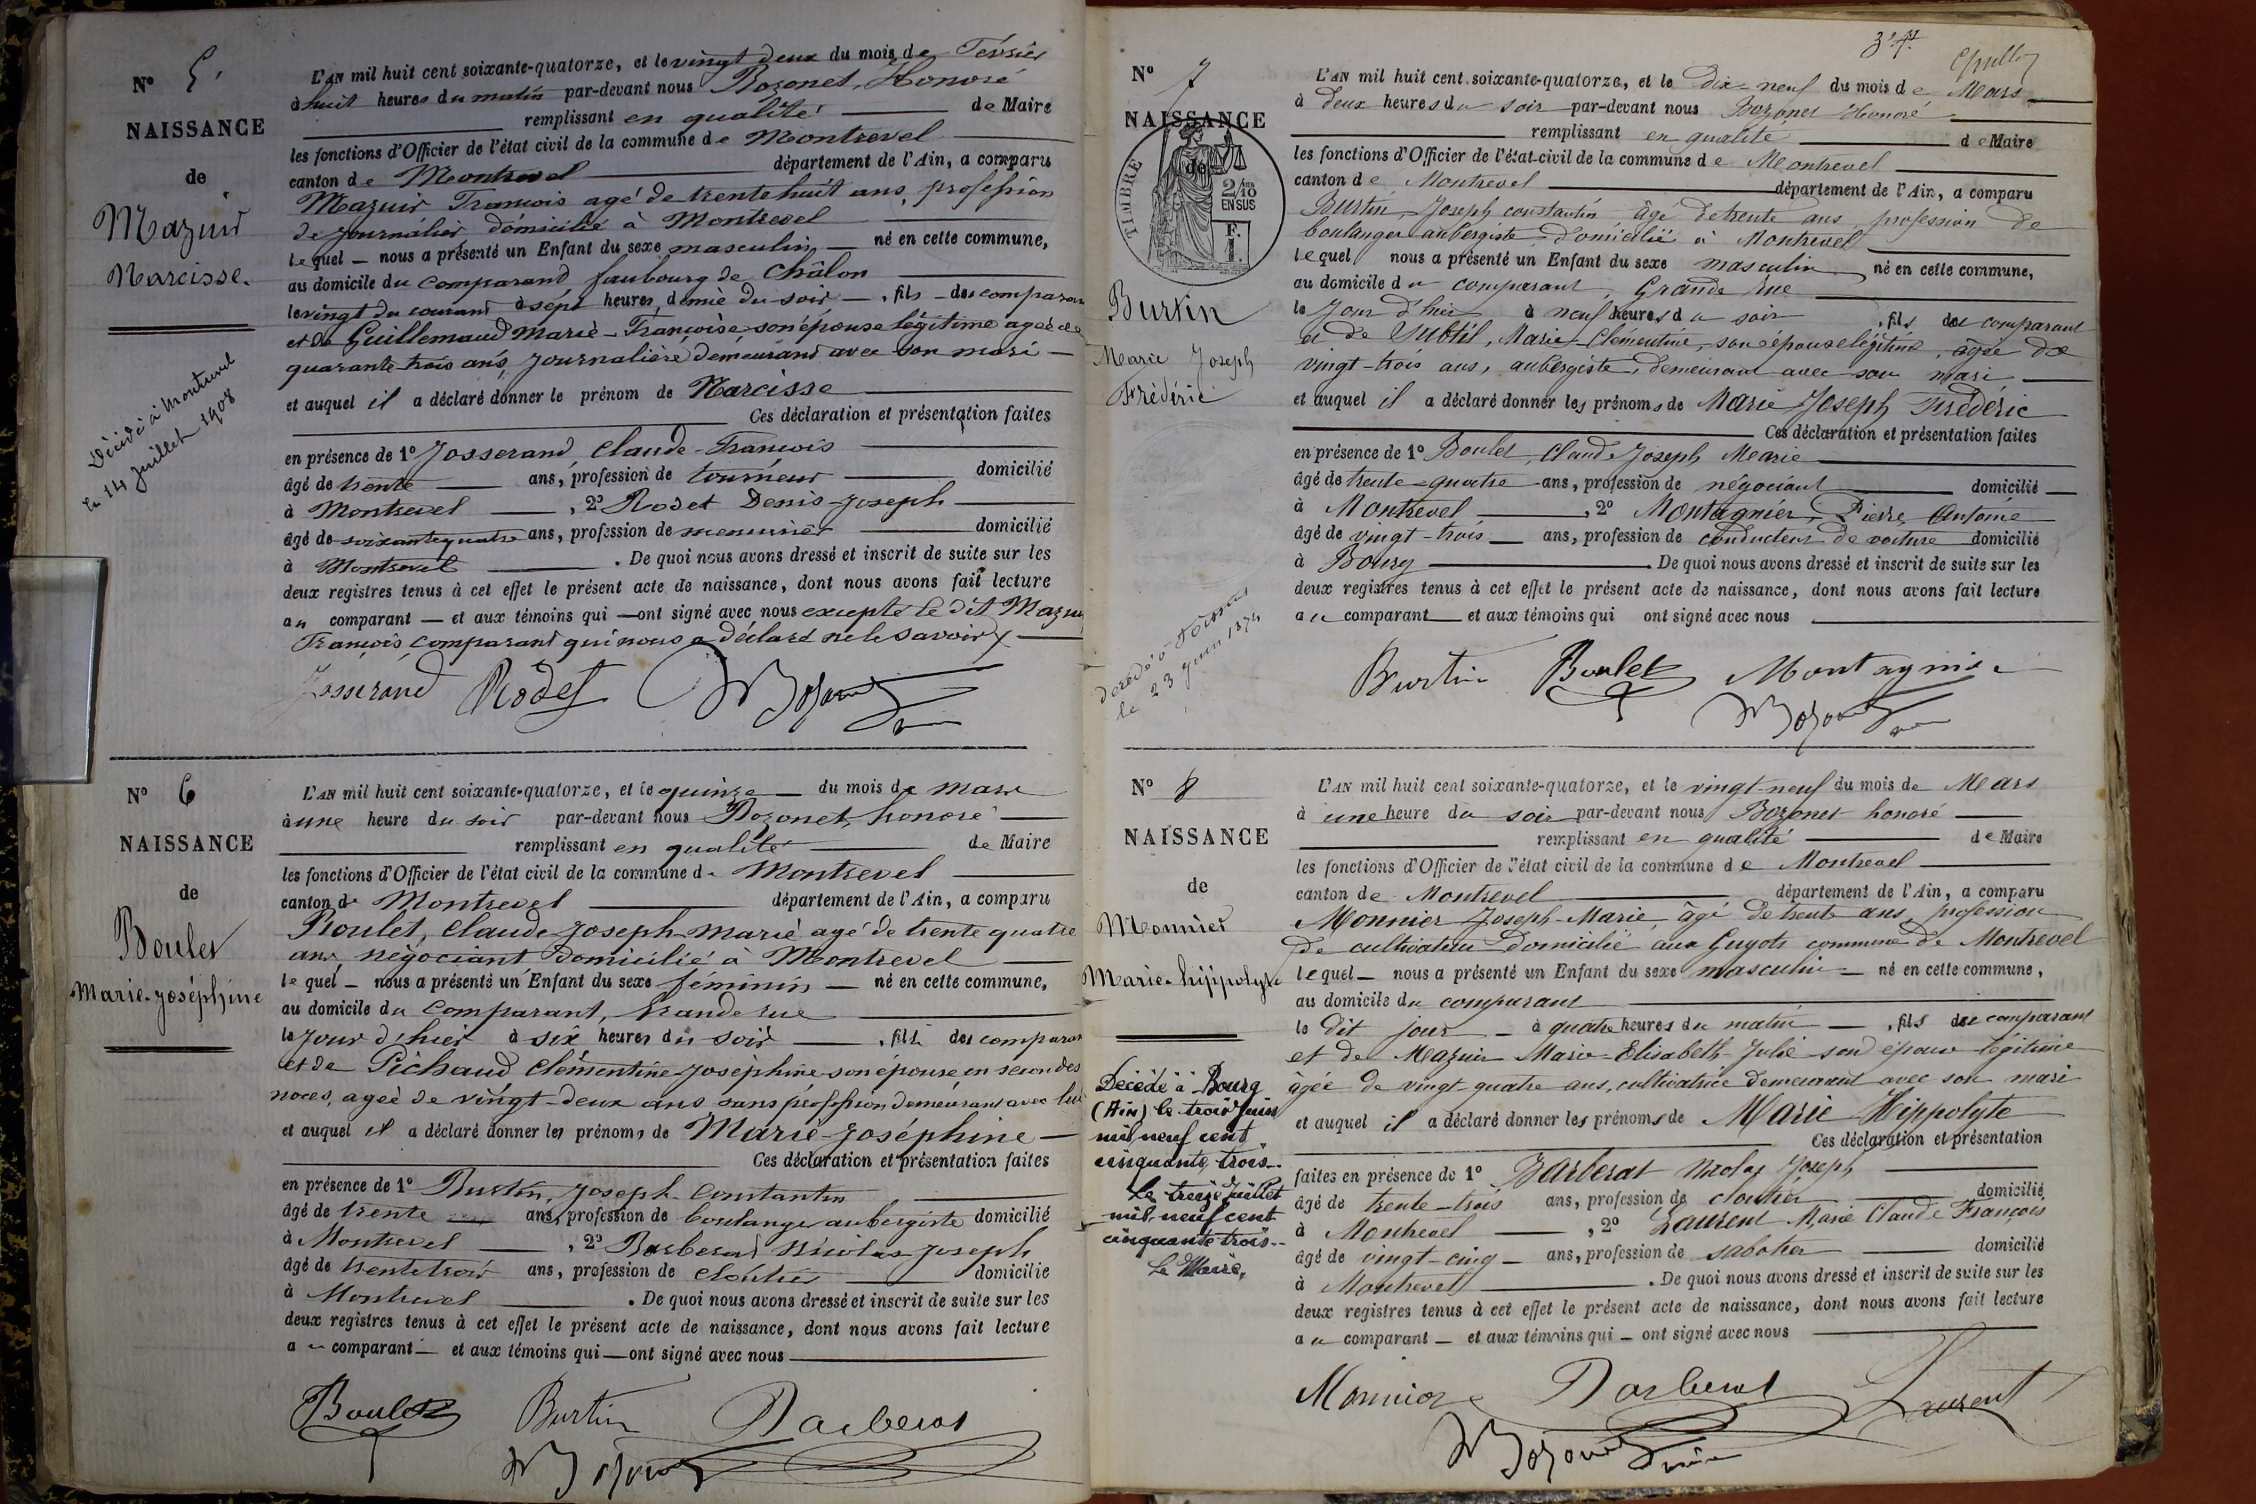 N° 5
NAISSANCE
de
Mazuir
Narcisse.
Décédé à Montrevel
le 14 Juillet 1908
L'AN mil huit cent soixante-quatorze, et le vingt deux du mois de Février
à huit heures du matin par-devant nous Bozonet, Honoré
remplissant en qualité de Maire
les fonctions d'Officier de l'état civil de la commune de Montrevel
canton de Montrevel département de l'Ain, a comparu
Mazuir François agé de trente huit ans, profession
de journalier domicilié à Montrevel
lequel nous a présenté un Enfant du sexe masculin né en cette commune,
au domicile du comparant faubourg de Châlon
le vingt du courant à sept heures demie du soir, fils des comparant
et de Guillemaud Marie-Françoise son épouse légitime agée de
quarante trois ans, journalière demeurant avec son mari
et auquel il a déclaré donner le prénom de Narcisse
Ces déclaration et présentation faites
en présence de 1° Josserand Claude-François
âgé de trente ans, profession de tourneur domicilié
à Montrevel, 2° Rodet Denis Joseph
âgé de soixante quatre ans, profession de menuisier domicilié
à Montrevel. De quoi nous avons dressé et inscrit de suite sur les
deux registres tenus à cet effet le présent acte de naissance, dont nous avons fait lecture
au comparant et aux témoins qui ont signé avec nous excepté le dit Mazuir
François comparant qui nous a déclaré ne le savoir
Josserand Rodet Bozonet
N° 6
NAISSANCE
de
Boulet
Marie-Joséphine
L'AN mil huit cent soixante-quatorze, et le quinze du mois de mars
à une heure du soir par-devant nous Bozonet, honoré
remplissant en qualité de Maire
les fonctions d'Officier de l'état civil de la commune de Montrevel
canton de Montrevel département de l'Ain, a comparu
Boulet, Claude Joseph Marie agé de trente quatre
ans négociant domicilié à Montrevel
lequel nous a présenté un Enfant du sexe féminin né en cette commune,
au domicile du comparant, Grande rue
le jour d'hier à six heures du soir, fille des comparant
et de Pichaud Clémentine Joséphine son épouse en secondes
noces, agée de vingt-deux ans sans profession demeurant avec lui
et auquel il a déclaré donner les prénoms de Marie-Joséphine
Ces déclaration et présentation faites
en présence de 1° Burtin, Joseph Constantin
âgé de trente ans, profession de boulanger aubergiste domicilié
à Montrevel, 2° Barberat Nicolas Joseph
âgé de trente trois ans, profession de cloutier domicilié
à Montrevel. De quoi nous avons dressé et inscrit de suite sur les
deux registres tenus à cet effet le présent acte de naissance, dont nous avons fait lecture
au comparant et aux témoins qui ont signé avec nous
Boulet Burtin Barberat
Bozonet
N° 7
NAISSANCE
de
TIMBRE
2/10
EN SUS
F.
1.
Burtin
Marie Joseph
Frédéric
le 23 Juin 1874
L'AN mil huit cent soixante-quatorze, et le Dix-neuf du mois de Mars
à deux heures du soir par-devant nous Bozonet Honoré
remplissant en qualité de Maire
les fonctions d'Officier de l'état-civil de la commune de Montrevel
canton de Montrevel département de l'Ain, a comparu
Burtin, Joseph constantin âgé de trente ans profession de
boulanger aubergiste domicilié à Montrevel
lequel nous a présenté un Enfant du sexe masculin né en cette commune,
au domicile du comparant, Grande Rue
le Jour d'hier à neuf heures du soir, fils des comparant
et de Subtil, Marie-Clémentine, son épouse légitime, agée de
vingt-trois ans, aubergiste, demeurant avec son mari
et auquel il a déclaré donner les prénoms de Marie Joseph Frédéric
Ces déclaration et présentation faites
en présence de 1° Boulet, Claude Joseph Marie
âgé de trente-quatre ans, profession de négociant domicilié
à Montrevel, 2° Montagnier, Pierre Antoine
âgé de vingt-trois ans, profession de conducteur de voiture domicilié
à Bourg. De quoi nous avons dressé et inscrit de suite sur les
deux registres tenus à cet effet le présent acte de naissance, dont nous avons fait lecture
au comparant et aux témoins qui ont signé avec nous
Burtin Boulet Montagnier
Bozonet
N° 8
NAISSANCE
de
Monnier
Marie-hippolyte
Décédé à Bourg
(Ain) le trois Juin
mil neuf cent
cinquante trois.
Le treize Juillet
mil neuf cent
cinquante trois.
Le Maire,
L'AN mil huit cent soixante-quatorze, et le vingt-neuf du mois de Mars
à une heure du soir par-devant nous Bozonet honoré
remplissant en qualité de Maire
les fonctions d'Officier de l'état civil de la commune de Montrevel
canton de Montrevel département de l'Ain, a comparu
Monnier Joseph-Marie, âgé de trente ans, profession
de cultivateur domicilié aux Guyots commune de Montrevel
lequel nous a présenté un Enfant du sexe masculin né en cette commune,
au domicile du comparant
le dit jour à quatre heures du matin, fils des comparant
et de Mazuir Marie-Elisabeth-Julie son épouse légitime
âgée de vingt quatre ans, cultivatrice demeurant avec son mari
et auquel il a déclaré donner les prénoms de Marie Hippolyte
Ces déclaration et présentation
faites en présence de 1° Barberat Nicolas Joseph
âgé de trente-trois ans, profession de cloutier domicilié
à Montrevel, 2° Laurent Marie Claude François
âgé de vingt-cinq ans, profession de sabotier domicilié
à Montrevel. De quoi nous avons dressé et inscrit de suite sur les
deux registres tenus à cet effet le présent acte de naissance, dont nous avons fait lecture
au comparant et aux témoins qui ont signé avec nous
Monnier Barberat Laurent
Bozonet